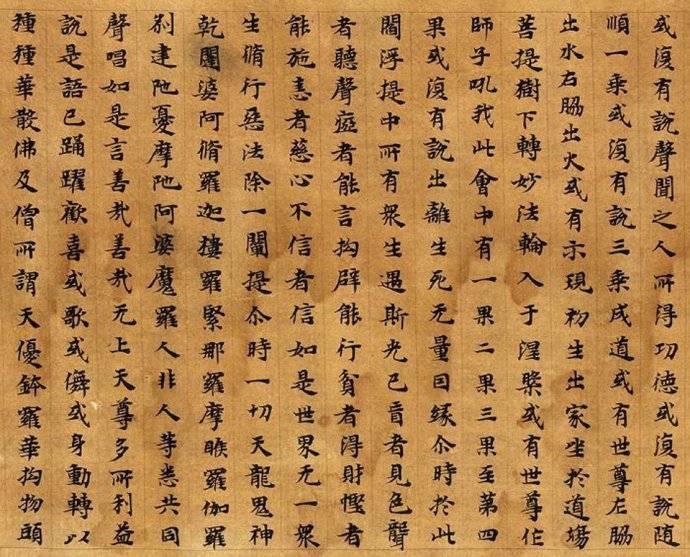 或復有說聲聞之人所得功德或復有說随
順一乘或復有說三乘成道或有世尊左脇
出水右脇出火或有示現初生出家坐於道場
菩提樹下轉妙法輪入于涅槃或有世尊作
師子吼我此會中有一果二果三果至第四
果或復有說出離生死无量因緣尒時於此
閻浮提中所有衆生遇斯光已盲者見色聾
者聽聲瘂者能言拘辟能行貧者得財慳者
能施恚者慈心不信者信如是世界无一衆
生脩行惡法除一闡提尒時一切天龍鬼神
乾闥婆阿脩羅迦樓羅緊那羅摩睺羅伽羅
刹建陁憂摩陁阿婆魔羅人非人等悉共同
聲唱如是言善哉善哉无上天尊多所利益
說是語已踊躍歡喜或歌或儛或身動轉以
種種華散佛及僧所謂天優鉢羅華拘物頭